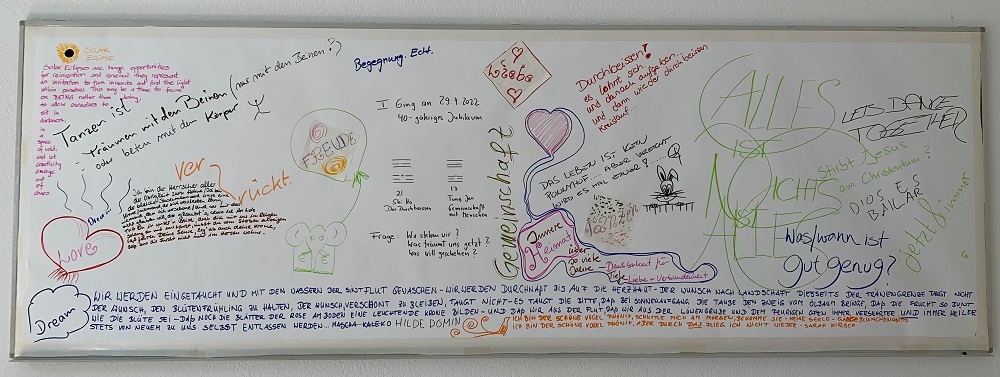 SOLAR
ECLIPSE
Solar Eclipses are huge opportunities
for reinvention and renewal. They represent
an invitation to turn inwards and find the light
within ourselves. This may be a time to focus
on BEING rather than doing,
to allow ourselves to
sit in
darkness,
in
a
space
of
void,
and let
creativity
emerge
out of
chaos.
Tanzen ist
- Träumen mit den Beinen (nur mit den Beinen?)
oder beten mit dem Körper
Begegnung. Echt.
Liebe
Durchbeissen!
es lohnt sich
und danach aufgeben...
und dann wieder durchbeissen
Kreislauf...
I Ging am 29.4.2022
40-jähriges Jubiläum
21
Shi Ho
Das Durchbeissen
13
Tung Jen
Gemeinschaft
mit Menschen
Frage: Wo stehen wir?
Was träumt uns jetzt?
Was will geschehen?
FREUDE
ver
rückt.
Love
Gemeinschaft
DAS LEBEN IST KEIN
PONYHOF... ABER VIELLEICHT
WIRD ES MAL EINER!...
Innere
Heimat
über
so viele
Deine
Tiefe
Loslassen
Dankbarkeit für
Liebe + Verbundenheit
ALLES
IST
NICHTS
ALLES
LETS DANCE
TOGETHER
Stirbt Jesus
am Christentum?
DIOS ES
BAILAR
Was/wann ist
gut genug?
Jetzt/immer
Dream
WIR WERDEN EINGETAUCHT UND MIT DEN WASSERN DER SINTFLUT GEWASCHEN - WIR WERDEN DURCHNÄßT BIS AUF DIE HERZHAUT - DER WUNSCH NACH LANDSCHAFT DIESSEITS DER TRÄNENGRENZE TAUGT NICHT
DER WUNSCH, DEN BLÜTENFRÜHLING ZU HALTEN, DER WUNSCH, VERSCHONT ZU BLEIBEN, TAUGT NICHT - ES TAUGT DIE BITTE, DAß BEI SONNENAUFGANG DIE TAUBE DEN ZWEIG VOM ÖLBAUM BRINGE, DAß DIE FRUCHT SO BUNT
WIE DIE BLÜTE SEI - DAß NOCH DIE BLÄTTER DER ROSE AM BODEN EINE LEUCHTENDE KRONE BILDEN - UND DAß WIR AUS DER FLUT, DAß WIR AUS DER LÖWENGRUBE UND DEM FEURIGEN OFEN IMMER VERSEHRTER UND IMMER HEILER
STETS VON NEUEM ZU UNS SELBST ENTLASSEN WERDEN. MASCHA KALEKO HILDE DOMIN
ICH BIN DER SCHÖNE VOGEL PHÖNIX, SCHÜTTLE MICH AM MORGEN, BEKOMME SIE - MEINE SEELE - GÄNSEBLÜMCHENWEISS
ICH BIN DER SCHÖNE VOGEL PHÖNIX, ABER DURCH DAS FLIEG ICH NICHT WIEDER - SARAH KIRSCH